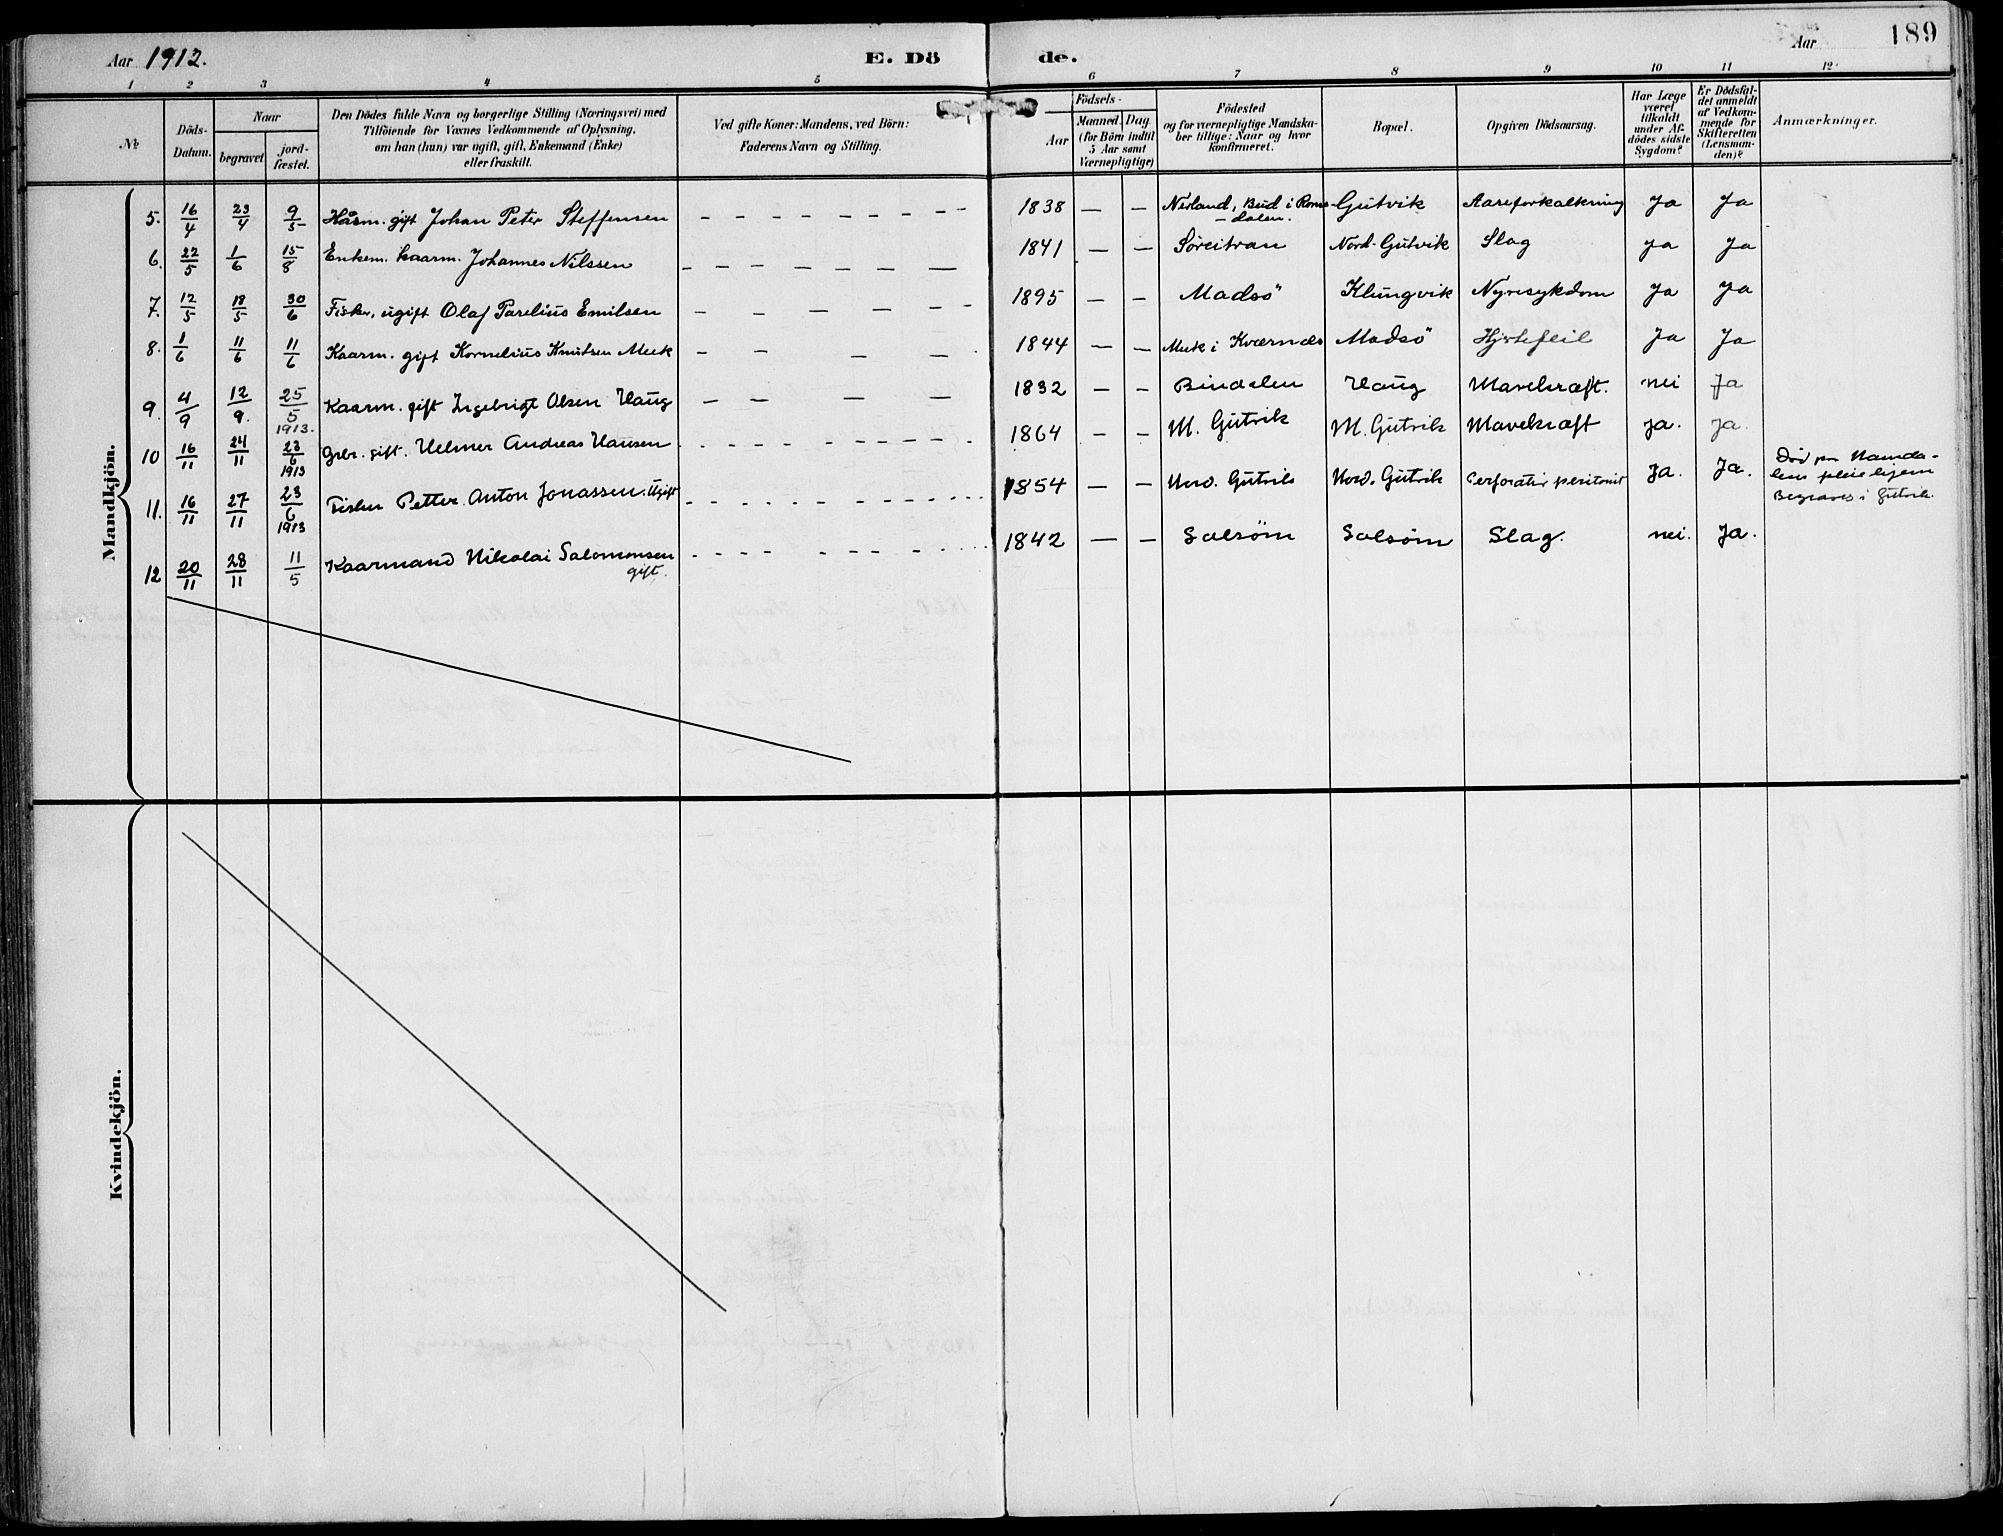 Aar 1912.
E. Dö
de.
Aar
189
1 2 3 4 5 6 7 8 9 10 11 12
№
Döds-
Datum.
Naar
begravet
jord-
fæstet.
Den Dödes fulde Navn og borgerlige Stilling (Næringsvei) med
Tilföiende for Voxnes Vedkommende af Oplysning,
om han (hun) var ugift, gift, Enkemand (Enke)
eller fraskilt.
Ved gifte Koner: Mandens, ved Börn:
Faderens Navn og Stilling.
Födsels-
Aar
Maaned. Dag.
(for Börn indtil
5 Aar samt
Værnepligtige)
Födested
og for værnepligtige Mandska-
ber tillige: Naar og hvor
konfirmeret.
Bopæl.
Opgiven Dödsaarsag.
Har Læge
været
tilkaldt
under Af-
dödes sidste
Sygdom?
Er Dödsfal-
det anmeldt
af Vedkom-
mende for
Skifteretten
(Lensman-
den)?
Anmærkninger.
Mandkjön.
5. 16/4 23/4 9/5 Kårm. gift Johan Peter Steffensen – – – – – – – – – 1838 – – Nerland, Bud i Roms-dalen. Gutvik Aareforkalkning Ja Ja
6. 22/5 1/6 15/8 Enkem. kaarm. Johannes Nilssen – – – – – – – 1841 – – Søreitran Nord-Gutvik Slag Ja Ja
7. 12/5 18/5 30/6 Fisker, ugift Olaf Parelius Emilsen – – – – – – 1895 – – Madsö Klungvik Nyresykdom Ja Ja
8. 1/6 11/6 11/6 Kaarm. gift Kornelius Knutsen Meek – – – – – 1844 – – Meek i Kværnæs Madsö Hjertefeil Ja Ja
9. 4/9 12/9. 25/5 1913. Kaarm. gift Ingebrigt Olsen Haug – – – – – 1832 – – Bindalen Haug Mavekræft. nei Ja
10 16/11 24/11 23/6 1913 Gbr. gift. Helmer Andreas Hansen – – – – – – – – 1864 – – M. Gutvik M. Gutvik Mavekræft Ja. Ja.
11. 16/11 27/11 23/6 1913 Fisker Petter Anton Jonassen. Ugift – – – – – – – – 1854 – – Nord. Gutvik Nord. Gutvik Perforativ peritonit Ja. Ja. Död paa Namda-
lens pleiehjem
Begraves i Gutvik.
12 20/11 28/11 11/5 Kaarmand Nikolai Salomonsen
gift. – – – – – – – – 1842 – – Solsøm Solsøm Slag. nei. Ja.
Kvindekjön.